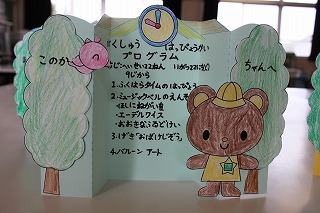 がくしゅう はっぴょうかい
プログラム
このか
ちゃんへ
へいせい22ねん
9じから
1.ふくはらタイムのはっぴょう
2.ミュージックベルのえんそう
・ほしにねがいを
・エーデルワイス
・おおきなふるどけい
3.げき「おばけじぞう」
4.バルーン アート